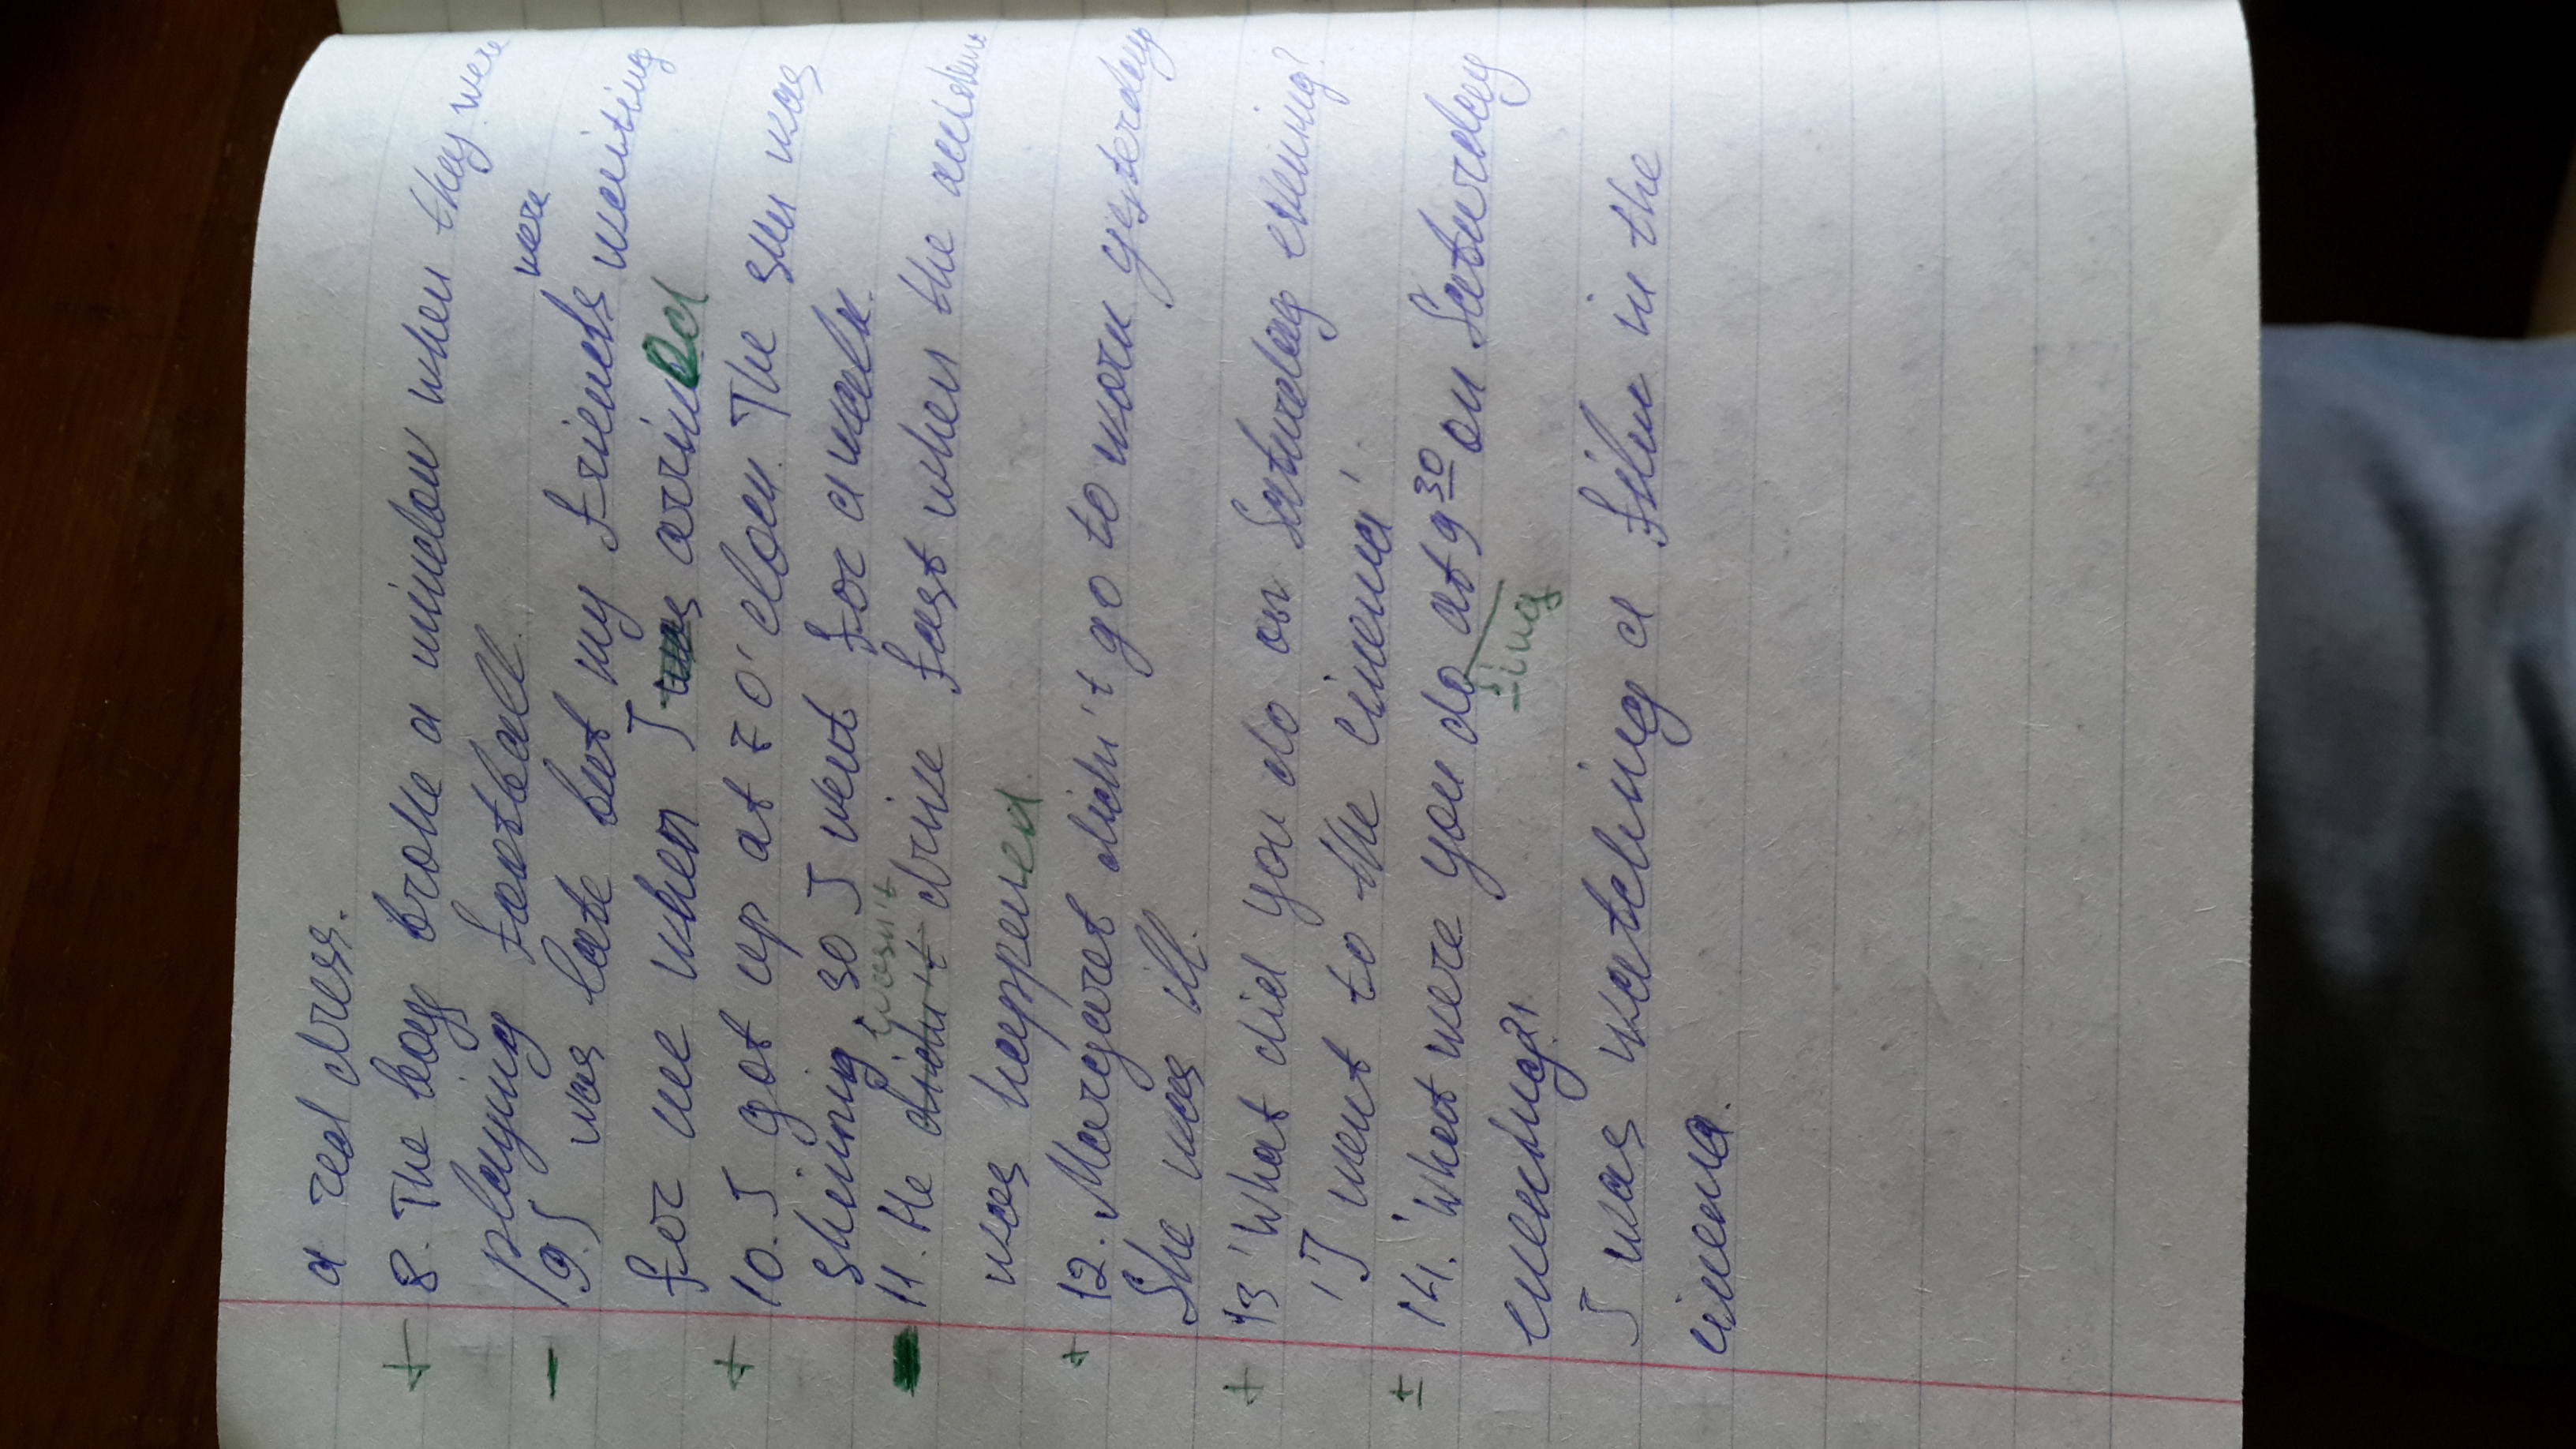 a red dress.
+ 8. The boys broke a window when they were
playing football.
were
- 9. I was late but my friends waiting
for me when I was arrived
+ 10. I got up at 7 o'clock. The sun was
shinnig, so I went for a walk.
wasn't
- 11. He didn't drive fast when the accident
was happened.
+ 12. Margaret didn't go to work yesterday
She was ill.
+ 13 'What did you do on Saturday evening?
'I went to the cinema'
± 14. 'What were you do at 9 30 on Saturday
ing
evening?'
I was watching a film in the
cinema.